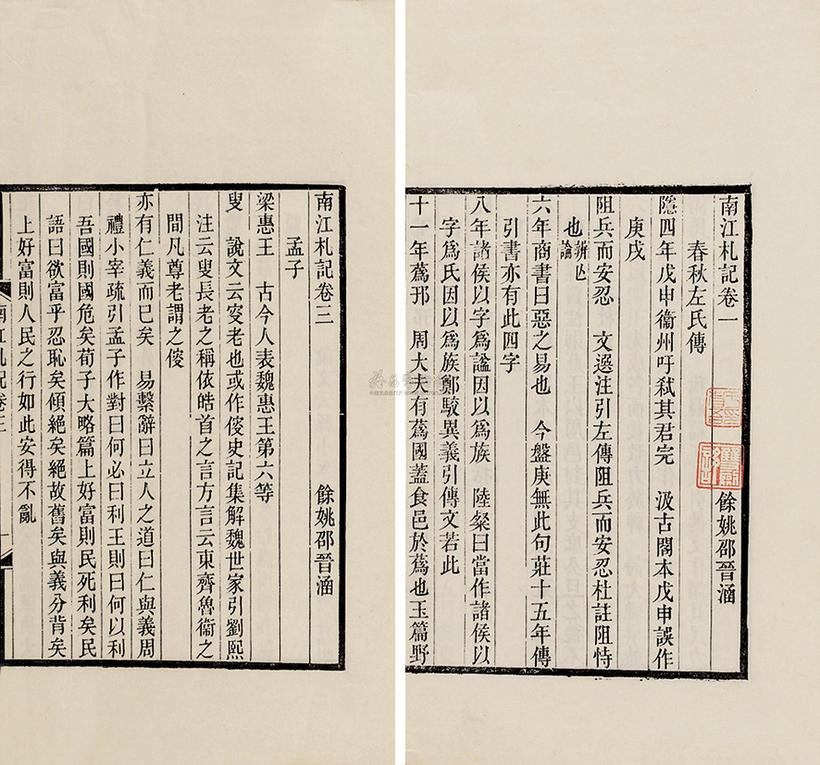 南江札記卷一 餘姚邵晉涵
春秋左氏傳
隱四年戊申衞州吁弒其君完 汲古閣本戊申誤作
庚戌
阻兵而安忍 文選注引左傳阻兵而安忍杜註阻恃
也辨亾論
六年商書曰惡之易也 今盤庚無此句莊十五年傳
引書亦有此四字
八年諸侯以字爲諡因以爲族 陸粲曰當作諸侯以
字爲氏因以爲族鄭駮異義引傳文若此
十一年蔿邘 周大夫有蔿國蓋食邑於蔿也玉篇野
南江札記卷三 餘姚邵晉涵
孟子
梁惠王 古今人表魏惠王第六等
叟 說文云叜老也或作傁史記集解魏世家引劉熙
注云叟長老之稱依皓首之言方言云東齊魯衞之
間凡尊老謂之傁
亦有仁義而巳矣 易繫辭曰立人之道曰仁與義周
禮小宰疏引孟子作對曰何必曰利王則曰何以利
吾國則國危矣荀子大略篇上好富則民死利矣民
語曰欲富乎忍恥矣傾絕矣絕故舊矣與義分背矣
上好富則人民之行如此安得不亂
南江札記卷三